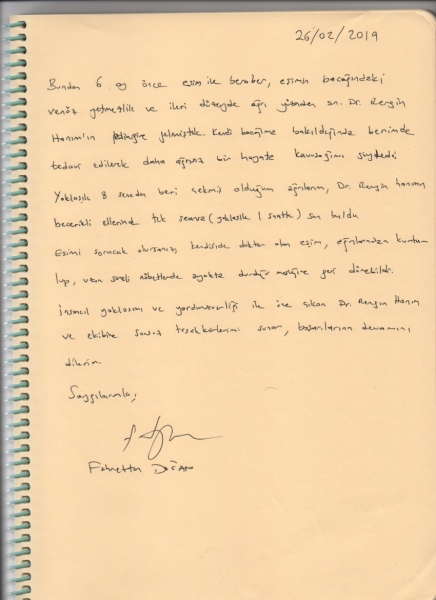 26/02/2019
Bundan 6 ay önce eşim ile beraber, eşimin bacağındaki
venöz yetmezlik ve ileri düzeyde ağrı yüzünden sn. Dr. Rengin
Hanım'ın kliniğine gelmiştik. Kendi bacağıma bakıldığında benimde
tedavi edilerek daha ağrısız bir hayata kavuşacağımı söyledi.
Yaklaşık 8 seneden beri çekmiş olduğum ağrılarım, Dr. Rengin hanımın
becerikli ellerinde tek seansta (yaklaşık 1 saatte) son buldu
Eşimi soracak olursanız kendiside doktor olan eşim, ağrılarından kurtu
lup, uzun süreli nöbetlerde ayakta durduğu mesleğine geri dönebildi.
İnsancıl yaklaşımı ve yardımseverliği ile öne çıkan Dr. Rengin Hanım
ve ekibine sonsuz teşekkürlerimi sunar, başarılarının devamını
dilerim.
Saygılarımla;
Fahrettin DOĞAN